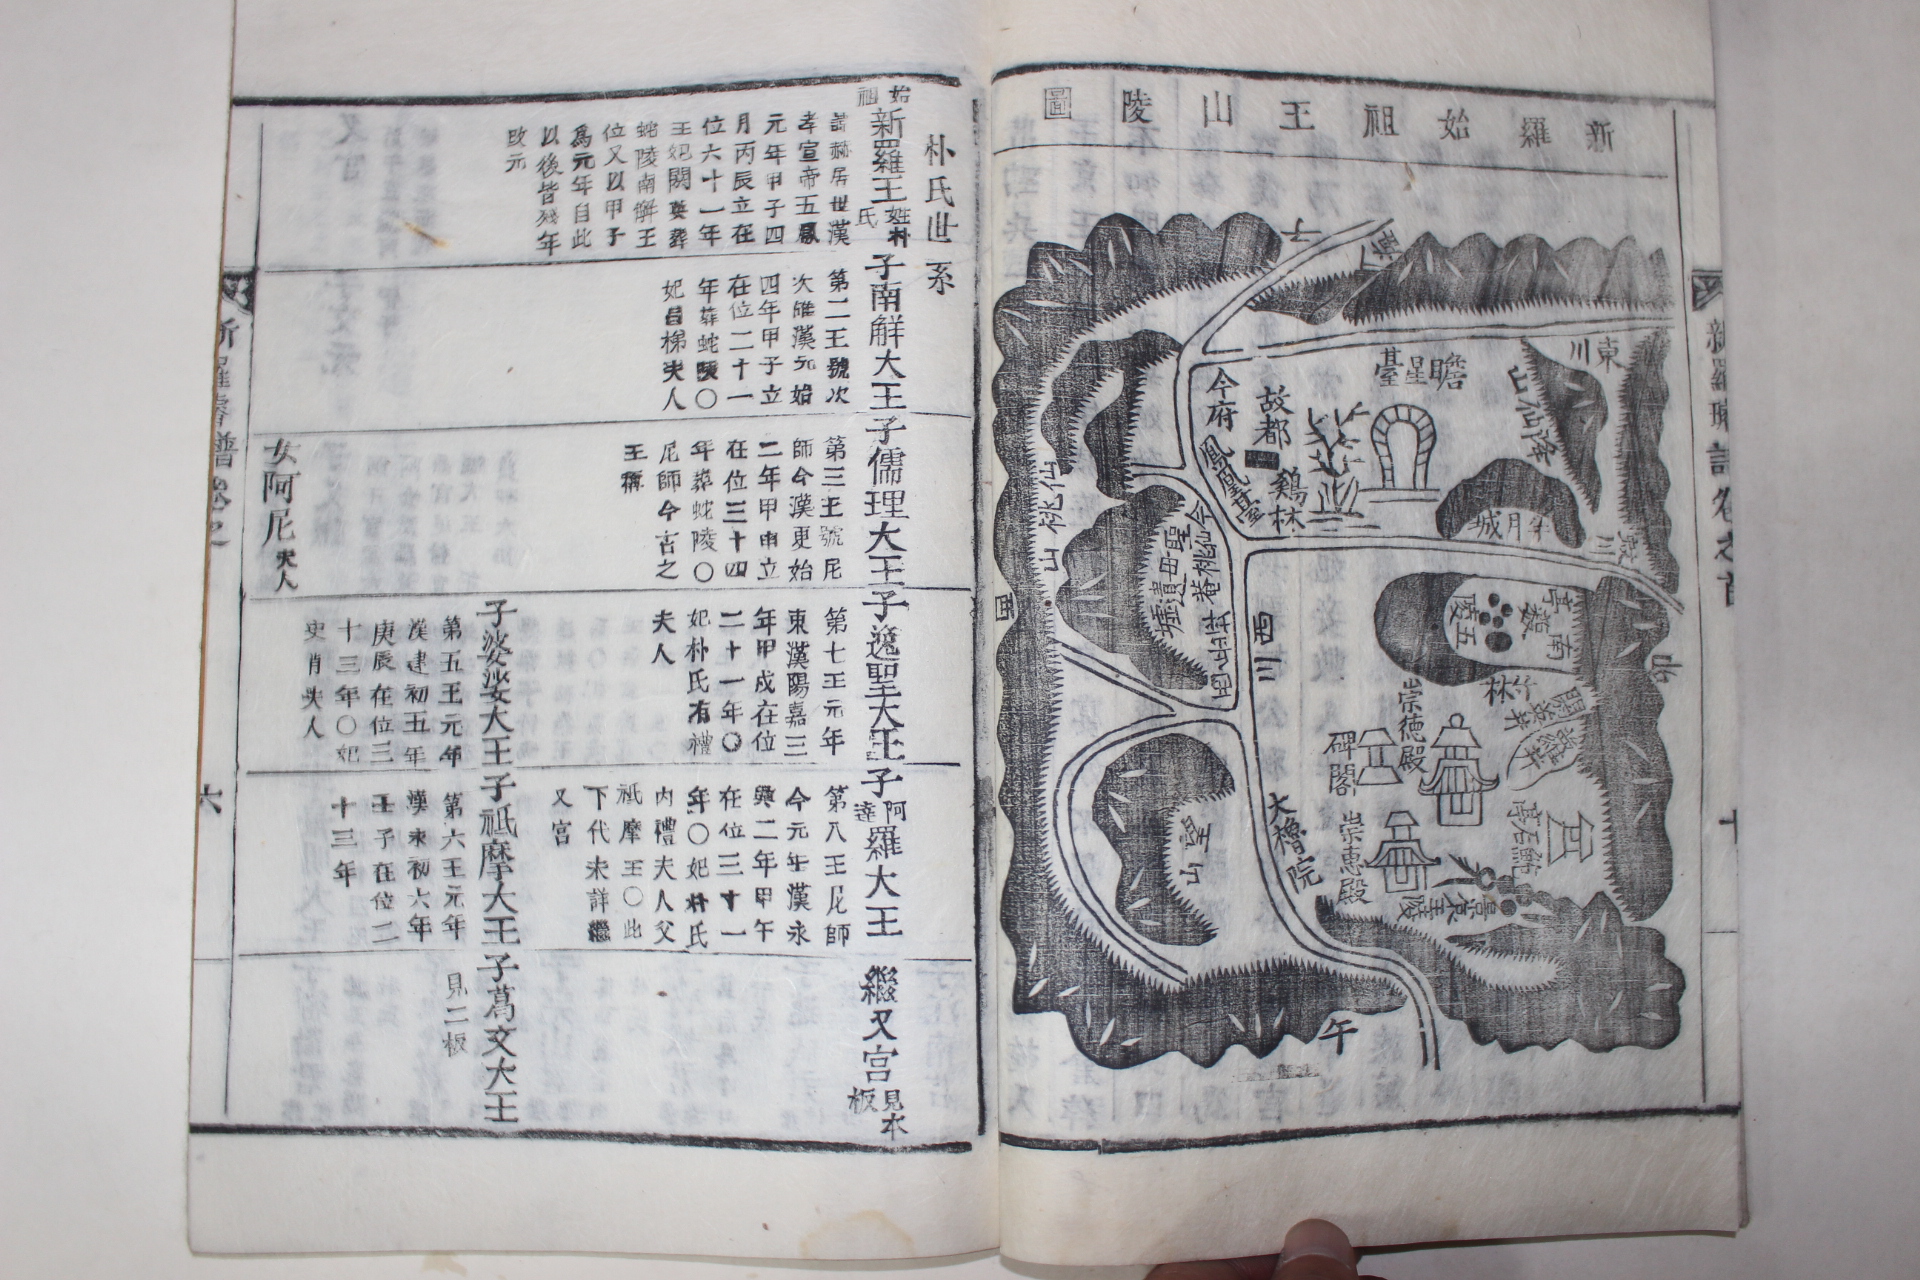 新羅始祖王山陵圖
東川
瞻星臺
今府
故都
鷄林
鳳凰臺
半月城
仙桃山
今仙桃菴
聖母遺墟
西川
五陵
南
林
崇德殿
碑閣
崇惠殿
大櫓院
望山
鮑石亭
午
朴氏世系
始祖
新羅王
姓朴氏
諱赫居世漢
孝宣帝五鳳
元年甲子四
月丙辰立在
位六十一年
王妃閼英葬
蛇陵南解王
位又以甲子
爲元年自此
以後皆殘年
改元
子南解大王
第二王號次
次雄漢元始
四年甲子立
在位二十一
年葬蛇陵〇
妃昌梯夫人
子儒理大王
第三王號尼
師今漢更始
二年甲申立
在位三十四
年葬蛇陵〇
尼師今古之
王稱
女阿尼夫人
子逸聖大王
第七王元年
東漢陽嘉三
年甲戌在位
二十一年〇
妃朴氏有禮
夫人
子婆娑大王
第五王元年
漢建初五年
庚辰在位三
十三年〇妃
史肖夫人
子阿達羅大王
第八王尼師
今元年漢永
興二年甲午
在位三十一
年〇妃朴氏
內禮夫人父
祇摩王〇此
下代未詳繼
又宮
子祇摩大王
第六王元年
漢永初六年
壬子在位二
十三年
繼又宮
見本板
子葛文大王
見二板
六